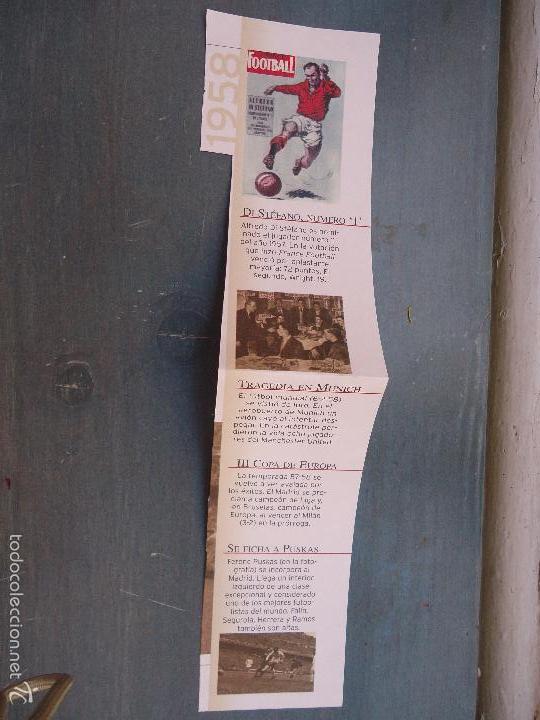 1958
FOOTBALL
ALFREDO
DI STEFANO
DI STÉFANO, NÚMERO "1"
Alfredo Di Stéfano es nomi-
nado el jugador número 1
del año 1957. En la votación
que hizo France Football
venció por aplastante
mayoría: 72 puntos. El
segundo, Wright, 19.
TRAGEDIA EN MUNICH
El fútbol mundial (6-2-58)
se vistió de luto. En el
aeropuerto de Munich un
avión cayó al intentar des-
pegar. En la catástrofe per-
dieron la vida ocho jugado-
res del Manchester United.
III COPA DE EUROPA
La temporada 57-58 se
vuelve a ver avalada por
los éxitos. El Madrid se pro-
clama campeón de Liga y,
en Bruselas, campeón de
Europa, al vencer al Milán
(3-2) en la prórroga.
SE FICHA A PUSKAS
Ferenc Puskas (en la foto-
grafía) se incorpora al
Madrid. Llega un interior
izquierdo de una clase
excepcional y considerado
uno de los mejores futbo-
listas del mundo. Falín,
Segurola, Herrera y Ramos
también son altas.
todocoleccion.net